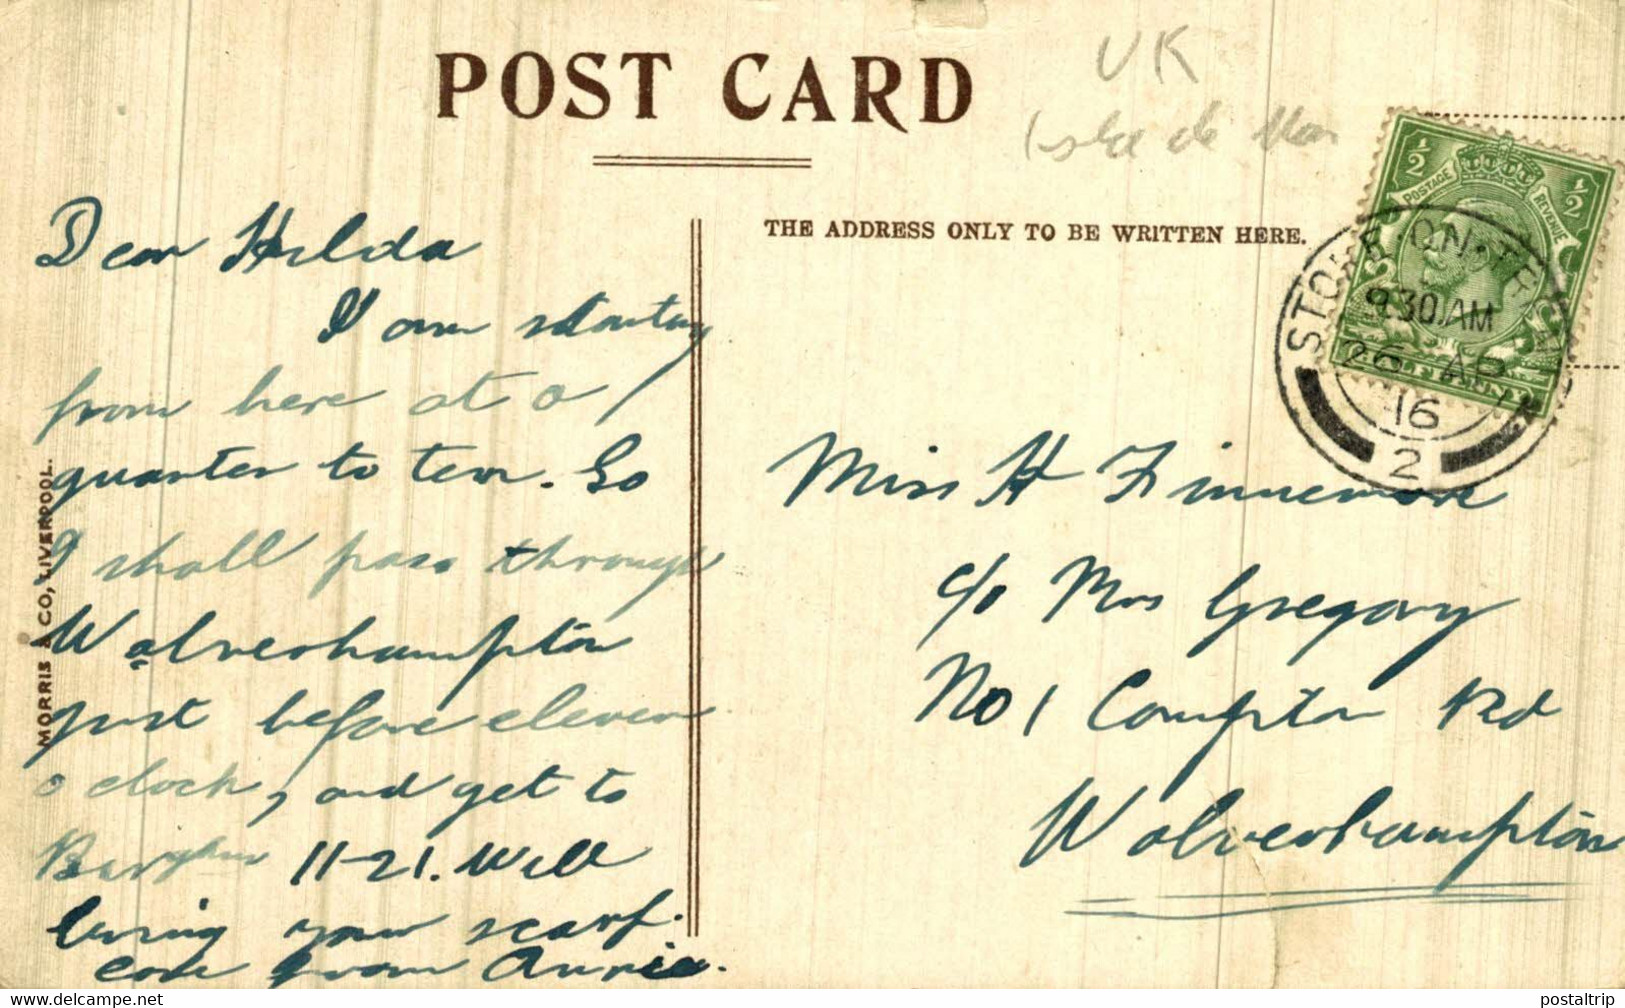 POST CARD
UK
Isle de Man
THE ADDRESS ONLY TO BE WRITTEN HERE.
½ ½
POSTAGE REVENUE
STOKE-ON-TRENT
9.30 AM
26 AP
16
2
Dear Hilda
I am starting
from here at a
quarter to ten. So
I shall pass through
Wolverhampton
just before eleven
o clock, and get to
11-21. Will
bring your scarf.
from Annie.
Miss H Finnemore
c/o Mrs Gregory
No 1 Compton Rd
Wolverhampton
MORRIS & CO, LIVERPOOL.
https://www.delcampe.net
postaltrip